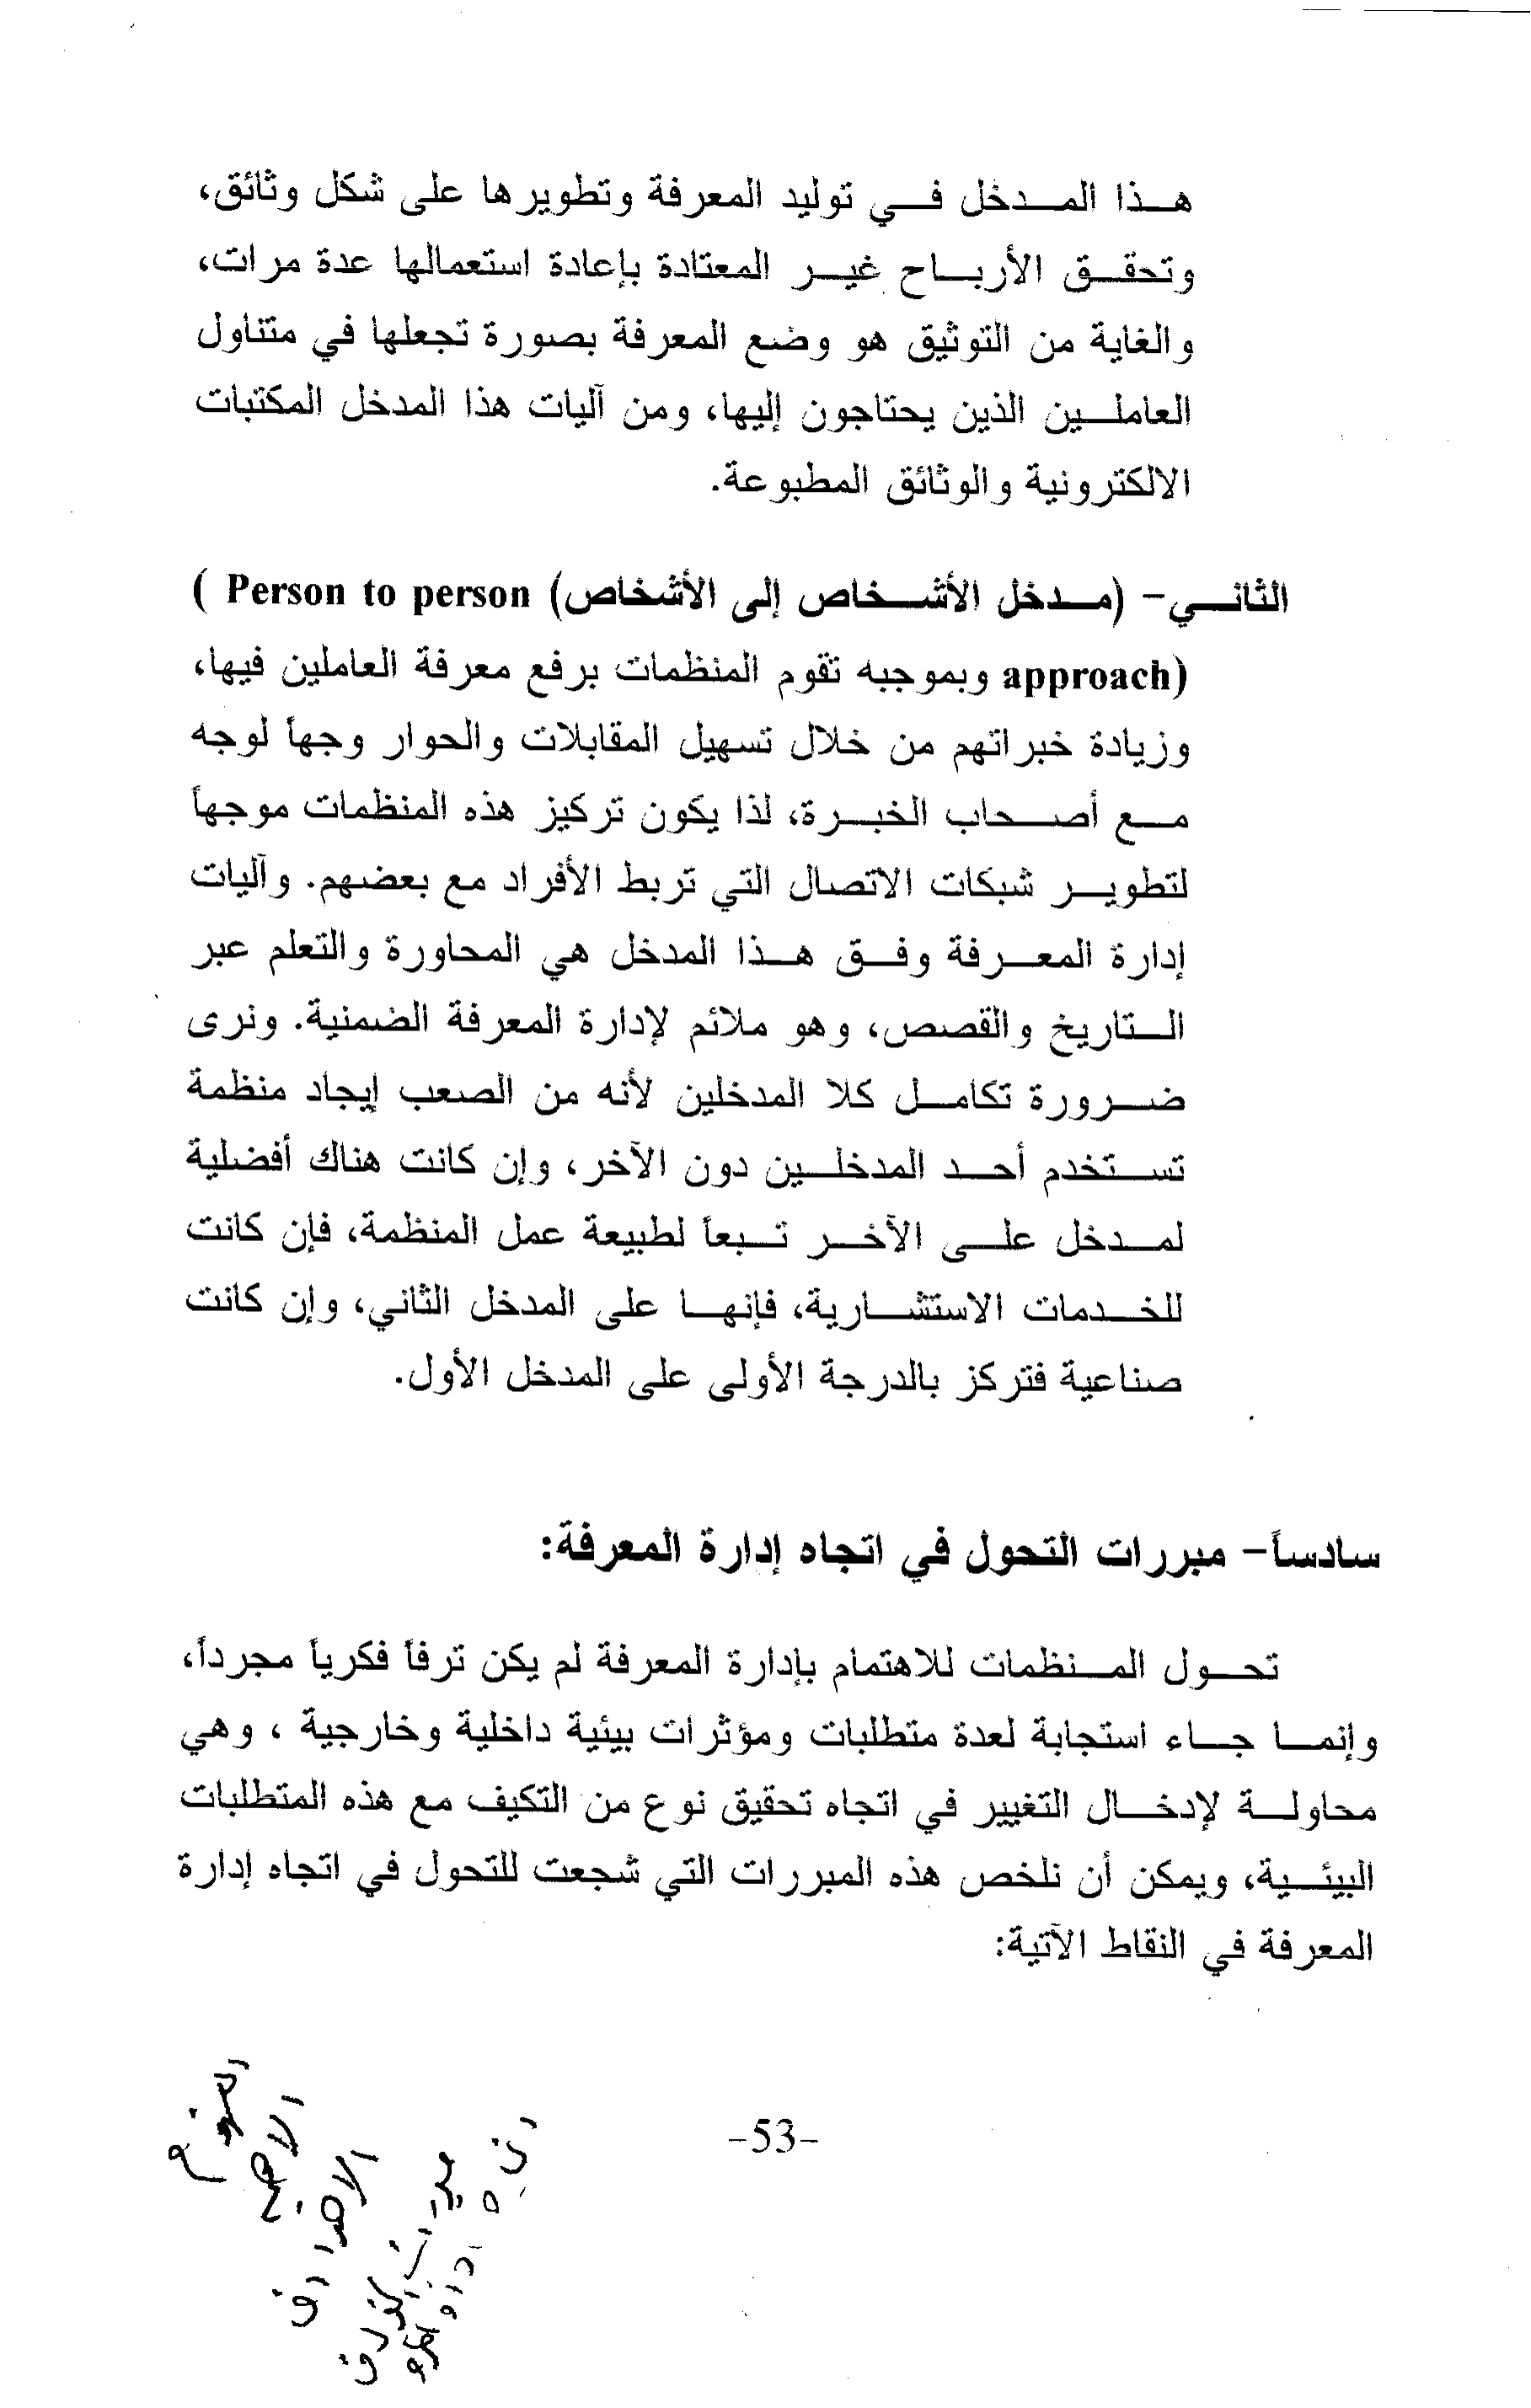 هذا المدخل في توليد المعرفة وتطويرها على شكل وثائق،
وتحقق الأرباح غير المعتادة بإعادة استعمالها عدة مرات،
والغاية من التوثيق هو وضع المعرفة بصورة تجعلها في متناول
العاملين الذين يحتاجون إليها، ومن آليات هذا المدخل المكتبات
الالكترونية والوثائق المطبوعة.
الثاني- (مدخل الأشخاص إلى الأشخاص) Person to person (
approach) وبموجبه تقوم المنظمات برفع معرفة العاملين فيها،
وزيادة خبراتهم من خلال تسهيل المقابلات والحوار وجهاً لوجه
مع أصحاب الخبرة، لذا يكون تركيز هذه المنظمات موجهاً
لتطوير شبكات الاتصال التي تربط الأفراد مع بعضهم. وآليات
إدارة المعرفة وفق هذا المدخل هي المحاورة والتعلم عبر
التاريخ والقصص، وهو ملائم لإدارة المعرفة الضمنية. ونرى
ضرورة تكامل كلا المدخلين لأنه من الصعب إيجاد منظمة
تستخدم أحد المدخلين دون الآخر، وإن كانت هناك أفضلية
لمدخل على الآخر تبعاً لطبيعة عمل المنظمة، فإن كانت
للخدمات الاستشارية، فإنها على المدخل الثاني، وإن كانت
صناعية فتركز بالدرجة الأولى على المدخل الأول.
سادساً- مبررات التحول في اتجاه إدارة المعرفة:
تحول المنظمات للاهتمام بإدارة المعرفة لم يكن ترفاً فكرياً مجرداً،
وإنما جاء استجابة لعدة متطلبات ومؤثرات بيئية داخلية وخارجية ، وهي
محاولة لإدخال التغيير في اتجاه تحقيق نوع من التكيف مع هذه المتطلبات
البيئية، ويمكن أن نلخص هذه المبررات التي شجعت للتحول في اتجاه إدارة
المعرفة في النقاط الآتية:
-53-